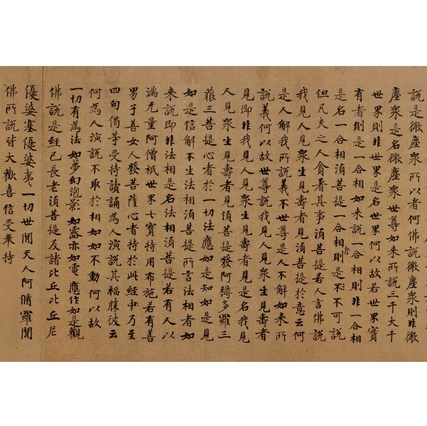 說是微塵眾所以者何佛說微塵眾則非微
塵眾是名微塵眾世尊如來所說三千大千
世界則非世界是名世界何以故若世界實
有者則是一合相如來說一合相則非一合相
是名一合相須菩提一合相則是不可說
但凡夫之人貪著其事須菩提若人言佛說
我見人見眾生見壽者見須菩提於意云何
是人解我所說義不世尊是人不解如來所
說義何以故世尊說我見人見眾生見壽者
見即非我見人見眾生見壽者見是名我見
人見眾生見壽者見須菩提發阿耨多羅三
藐三菩提心者於一切法應如是知如是見
如是信解不生法相須菩提所言法相者如
來說即非法相是名法相須菩提若有人以
滿无量阿僧祇世界七寶持用布施若有善
男子善女人發菩薩心者持於此經中乃至
四句偈等受持讀誦為人演說其福勝彼云
何為人演說不取於相如如不動何以故
一切有為法如夢幻泡影如露亦如電應作如是觀
佛說是經已長老須菩提及諸比丘比丘尼
優婆塞優婆夷一切世間天人阿脩羅聞
佛所說皆大歡喜信受奉持